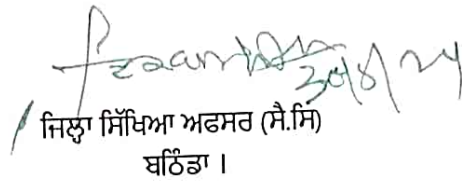 30/8/24
ਜਿਲ੍ਹਾ ਸਿੱਖਿਆ ਅਫਸਰ (ਸੈ.ਸਿ)
ਬਠਿੰਡਾ ।